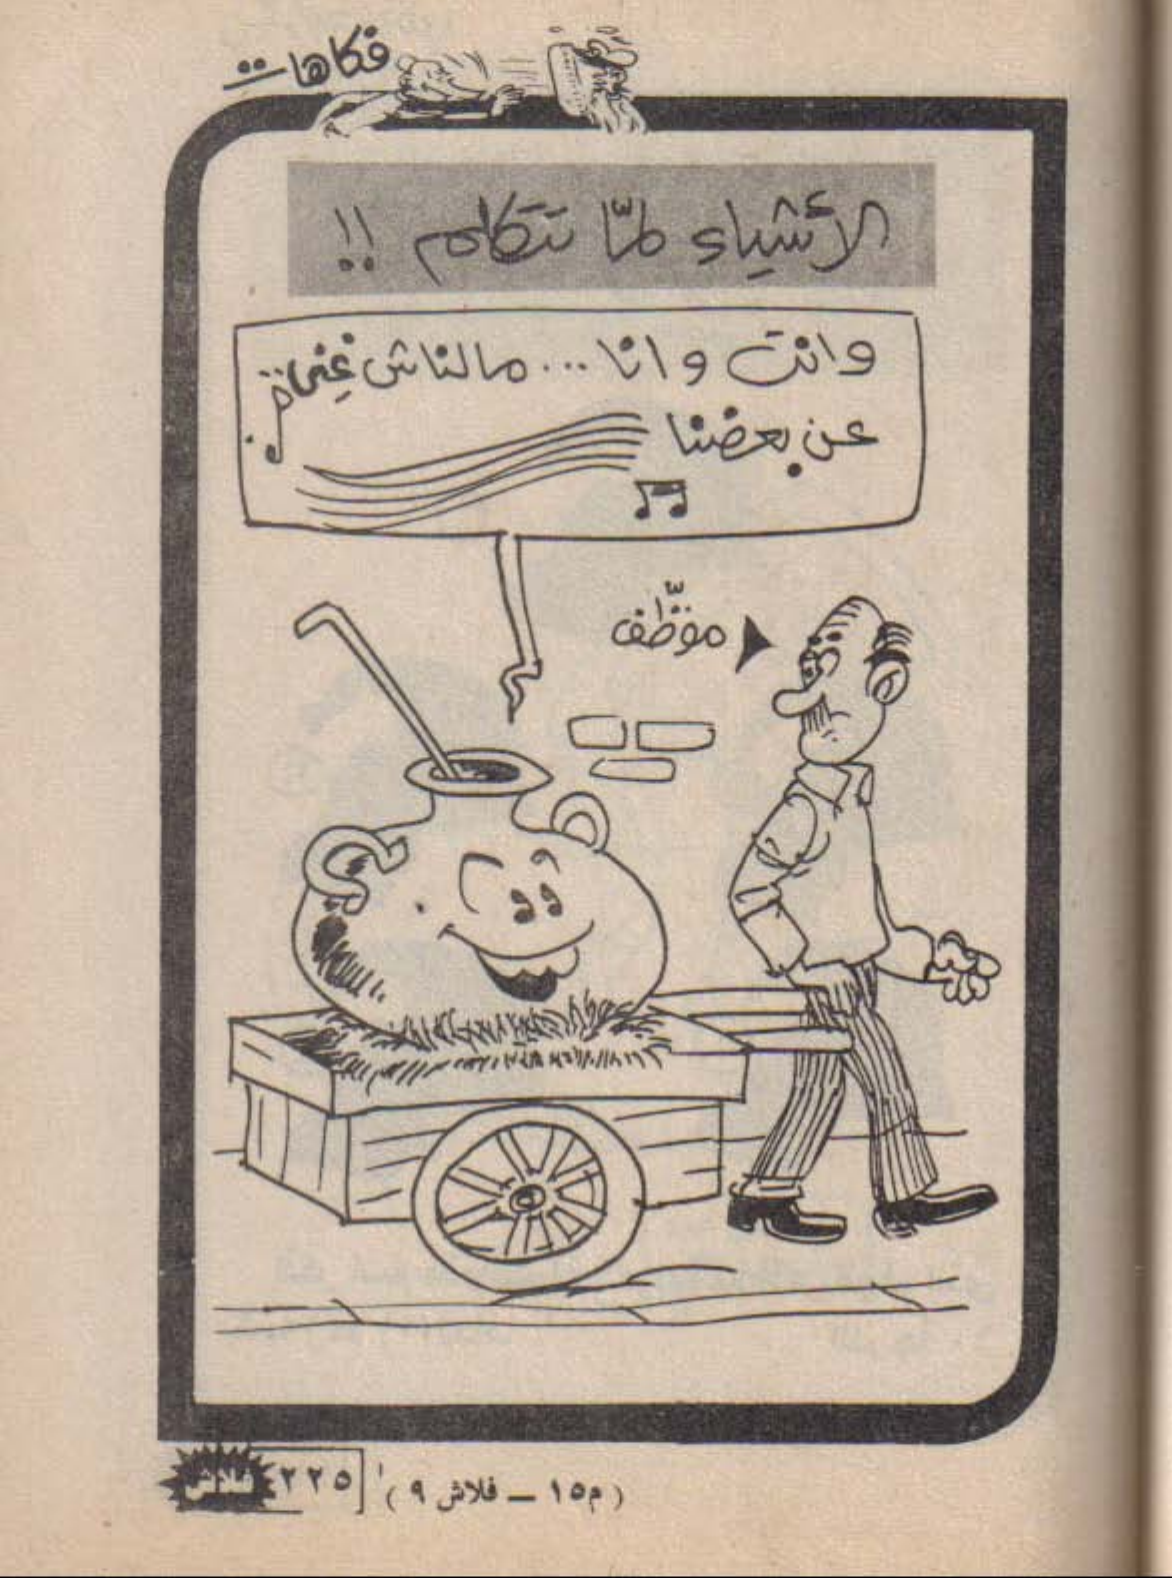 فكاهات
الأشياء لمّا تتكلم !!
وانت وانا ... مالناش غِنى
عن بعضنا
موظّف
فلاش ٢٢٥
( م١٥ — فلاش ٩ )